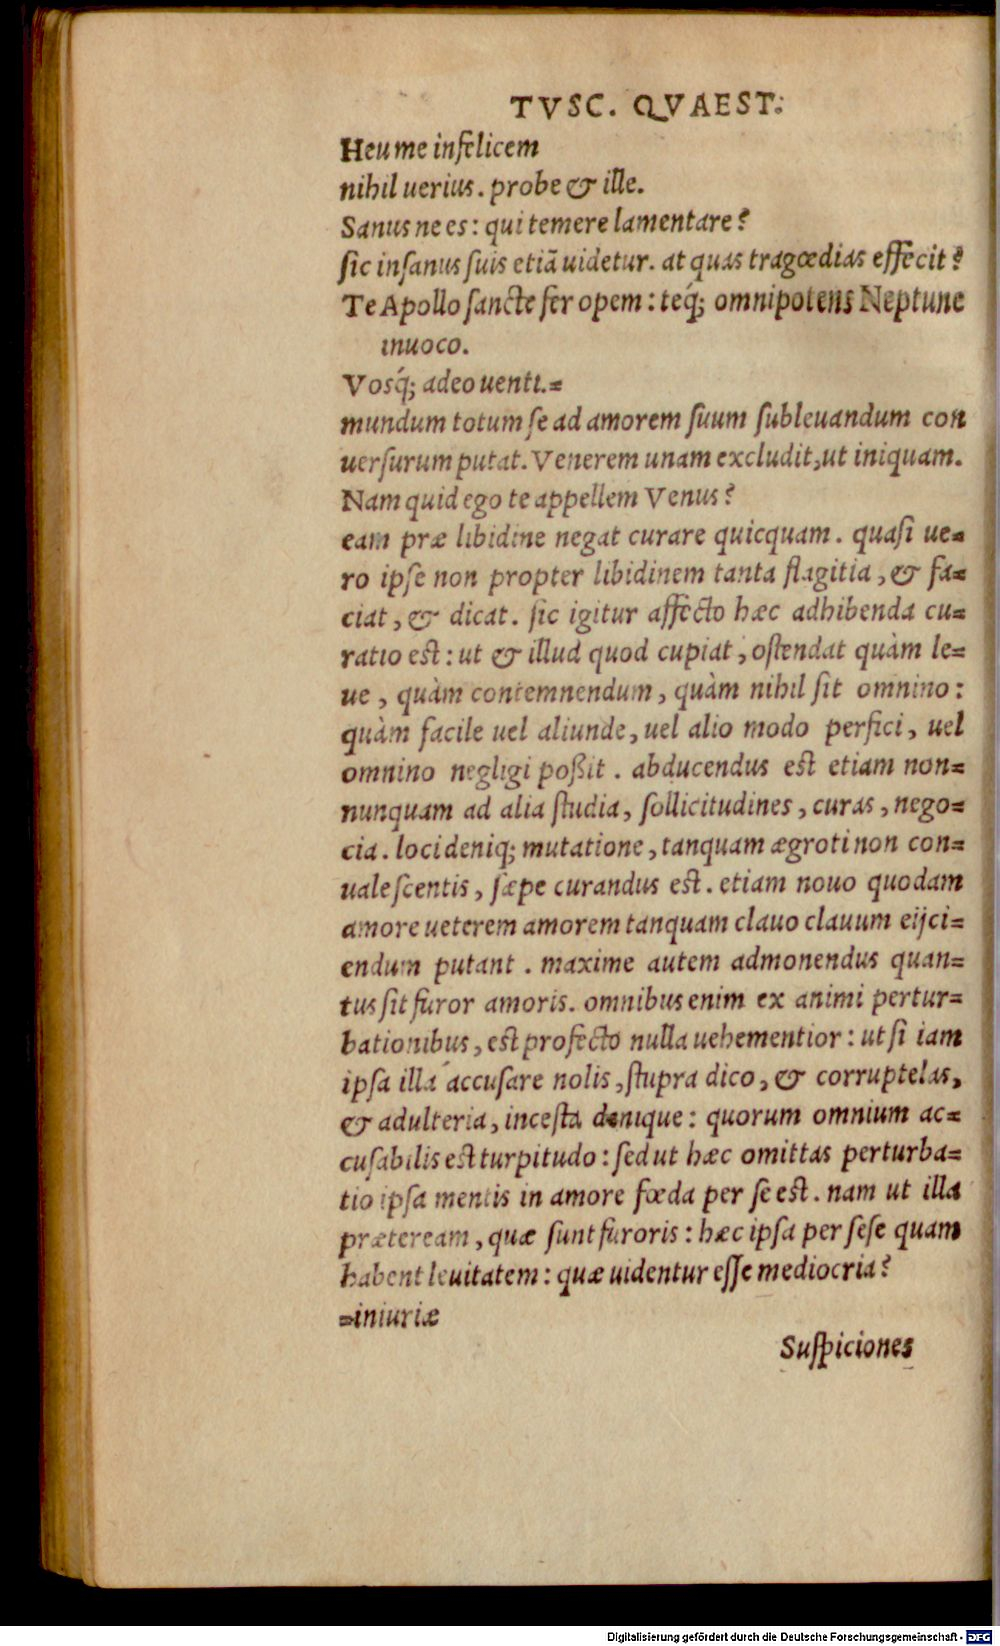 TVSC. QVAEST.
Heu me infelicem
nihil uerius. probe & ille.
Sanus ne es: qui temere lamentare?
sic insanus suis etiã uidetur. at quas tragœdias effecit?
Te Apollo sancte fer opem: teq́; omnipotens Neptune
inuoco.
Vosq́; adeo uenti.=
mundum totum se ad amorem suum subleuandum con
uersurum putat. Venerem unam excludit, ut iniquam.
Nam quid ego te appellem Venus?
eam præ libidine negat curare quicquam. quasi ue=
ro ipse non propter libidinem tanta flagitia, & fa=
ciat, & dicat. sic igitur affecto hæc adhibenda cu=
ratio est: ut & illud quod cupiat, ostendat quàm le=
ue, quàm contemnendum, quàm nihil sit omnino:
quàm facile uel aliunde, uel alio modo perfici, uel
omnino negligi poßit. abducendus est etiam non=
nunquam ad alia studia, sollicitudines, curas, nego=
cia. loci deniq; mutatione, tanquam ægroti non con=
ualescentis, sæpe curandus est. etiam nouo quodam
amore ueterem amorem tanquam clauo clauum eijci=
endum putant. maxime autem admonendus quan=
tus sit furor amoris. omnibus enim ex animi pertur=
bationibus, est profecto nulla uehementior: ut si iam
ipsa illa accusare nolis, stupra dico, & corruptelas,
& adulteria, incesta denique: quorum omnium ac=
cusabilis est turpitudo: sed ut hæc omittas perturba=
tio ipsa mentis in amore fœda per se est. nam ut illa
præteream, quæ sunt furoris: hæc ipsa per sese quam
habent leuitatem: quæ uidentur esse mediocria?
=iniuriæ
Suspiciones
Digitalisierung gefördert durch die Deutsche Forschungsgemeinschaft - DFG